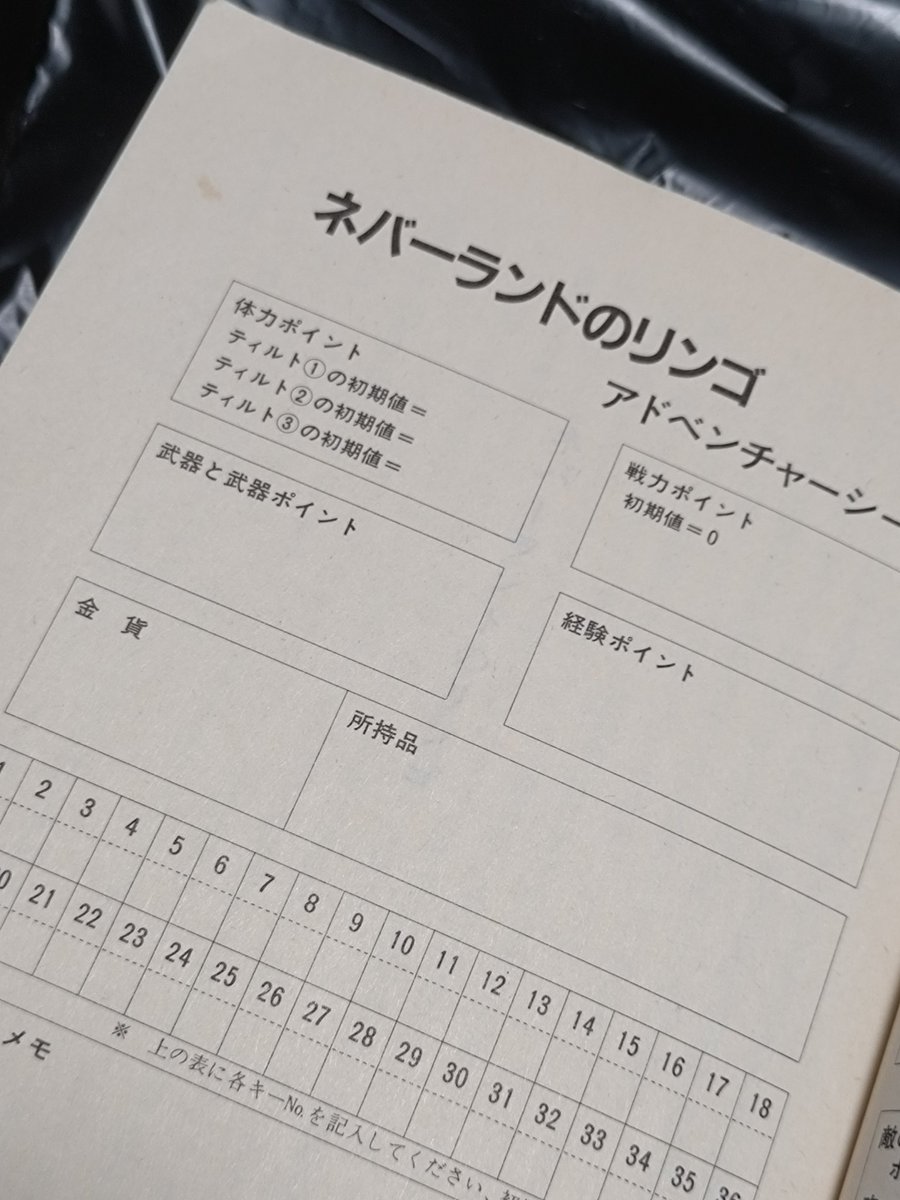 ネバーランドのリンゴ
アドベンチャーシー
体力ポイント
ティルト①の初期値＝
ティルト②の初期値＝
ティルト③の初期値＝
戦力ポイント
初期値＝0
武器と武器ポイント
経験ポイント
金　貨
所持品
1 2 3 4 5 6 7 8 9 10 11 12 13 14 15 16 17 18
21 22 23 24 25 26 27 28 29 30 31 32 33 34 35 36
※　上の表に各キーNo.を記入してください。
メモ